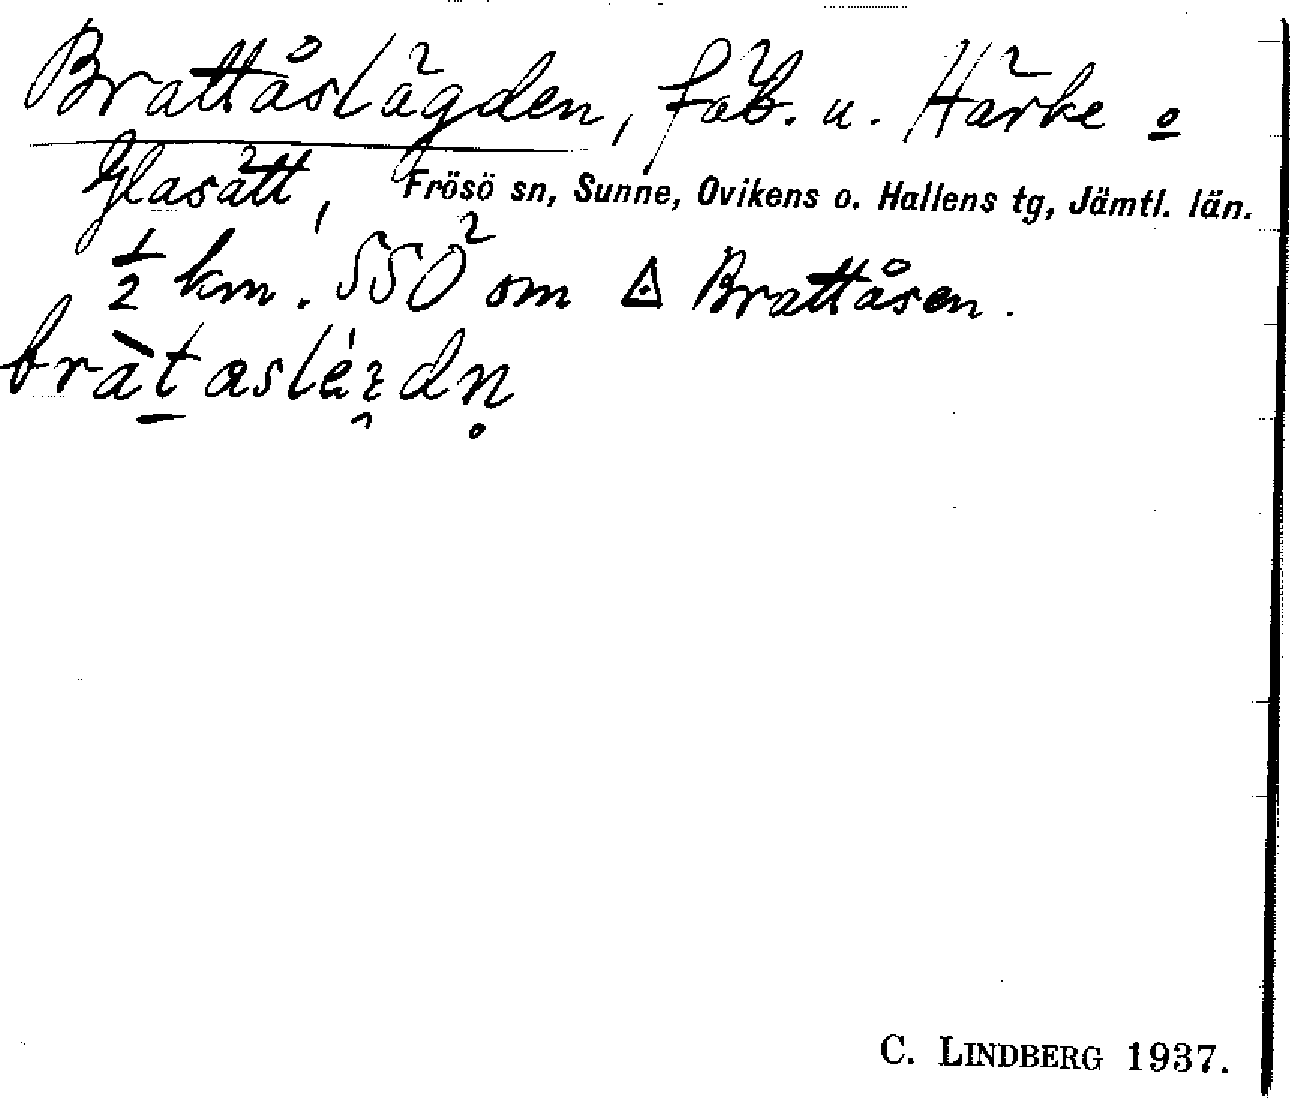 Brattåslägden, fäb. u. Härke o
Glasätt, Frösö sn, Sunne, Ovikens o. Hallens tg, Jämtl. län.
½ km. SSÖ om △ Brattåsen.
C. LINDBERG 1937.